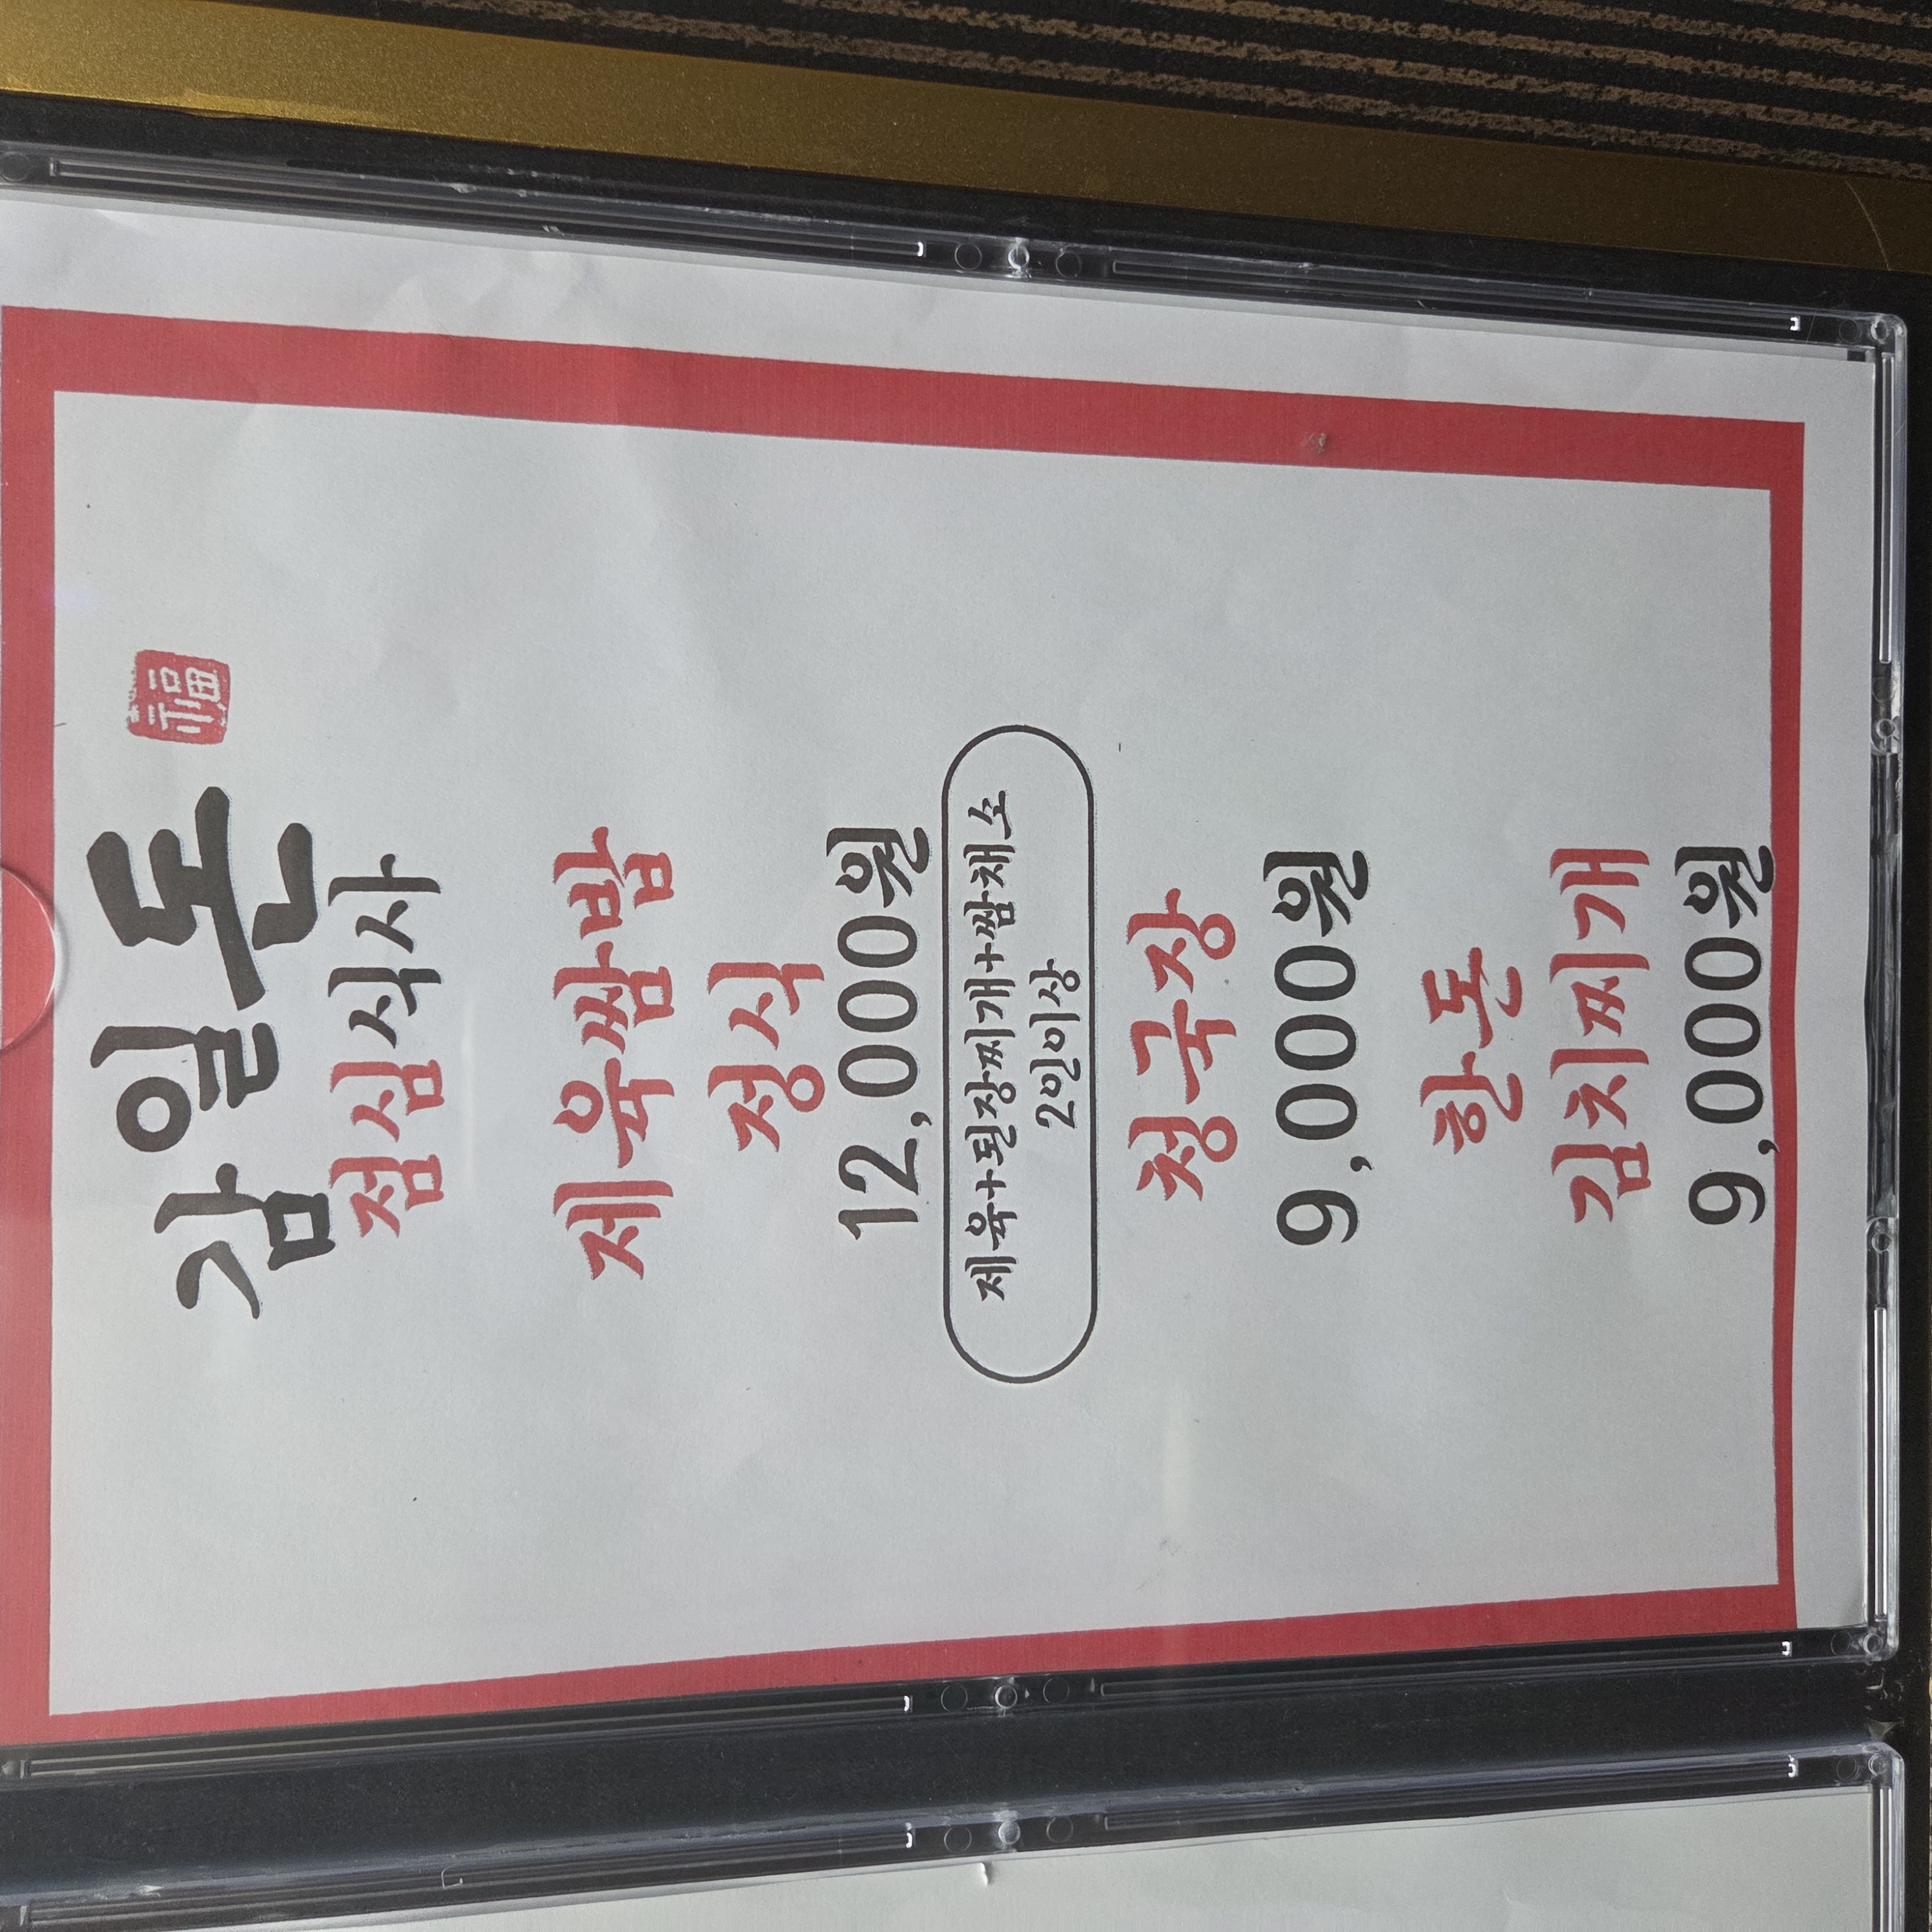 감일돈 福
점심식사
제육쌈밥
정식
12,000원
제육+된장찌개+쌈채소
2인이상
청국장
9,000원
한돈
김치찌개
9,000원